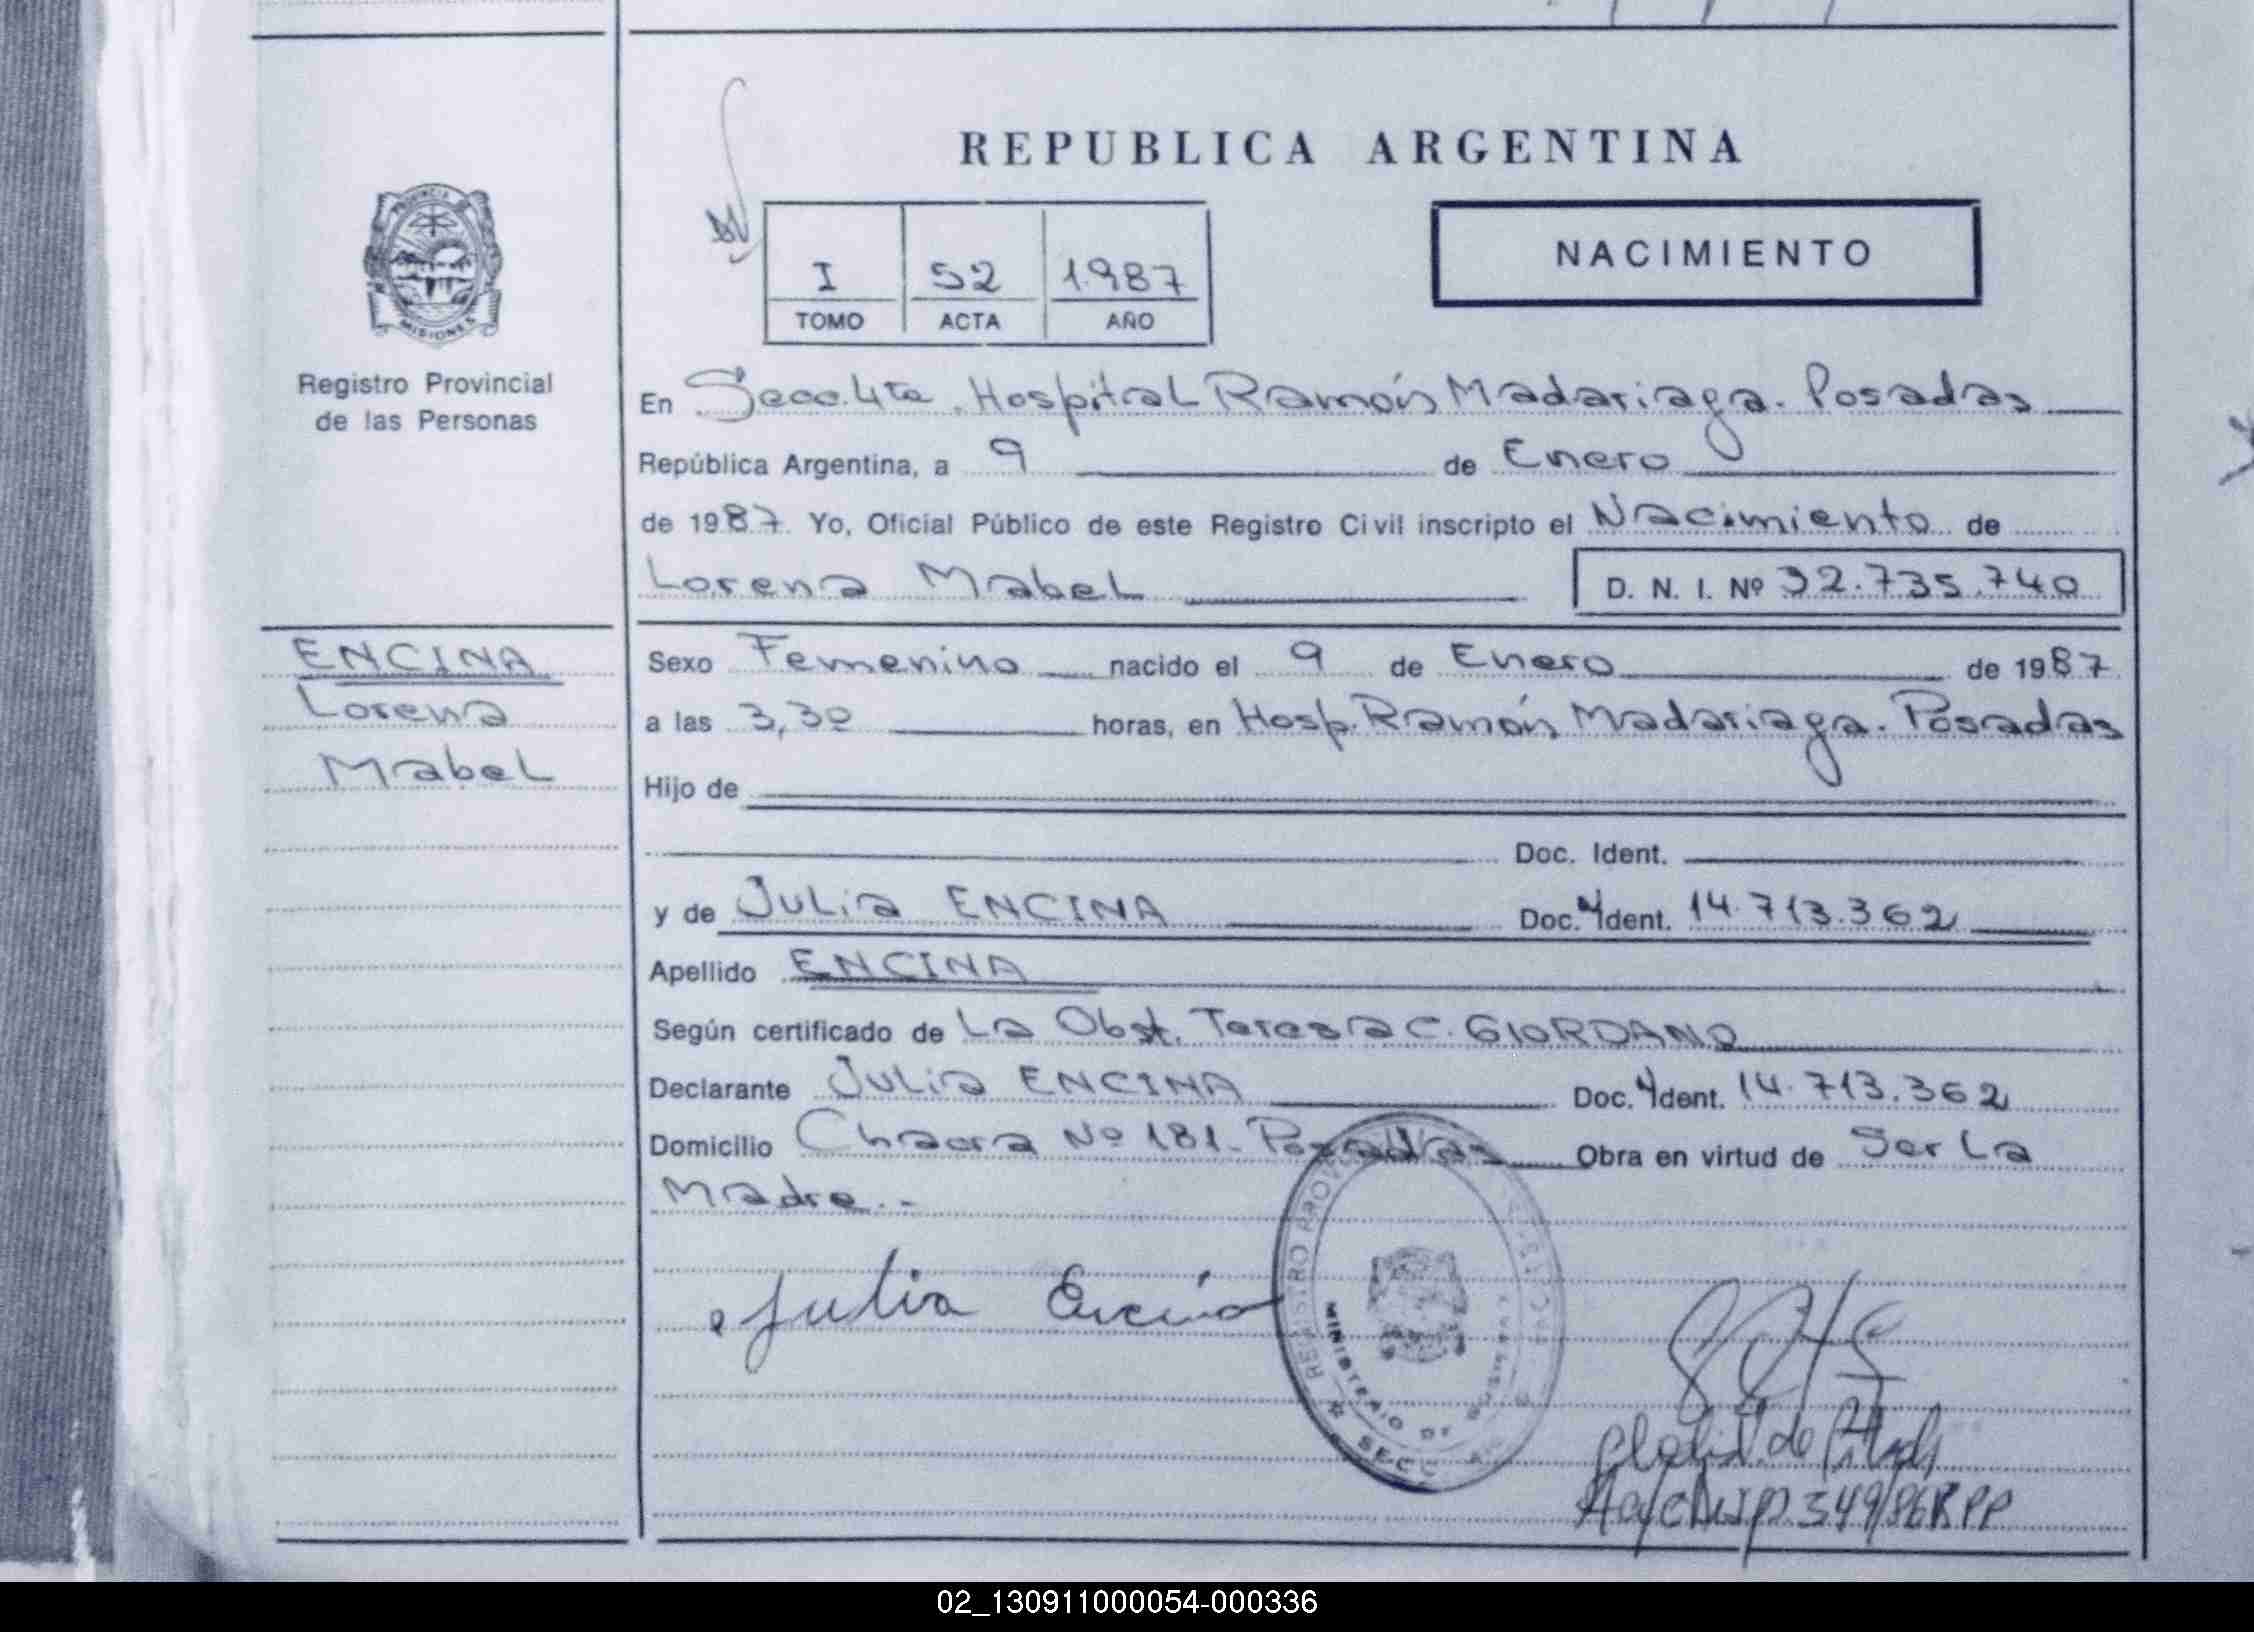 REPUBLICA ARGENTINA
NACIMIENTO
I 52 1.987
TOMO ACTA AÑO
PROVINCIA
MISIONES
Registro Provincial
de las Personas
En Secc. 4ta. Hospital Ramón Madariaga. Posadas
República Argentina, a 9 de Enero
de 1987. Yo, Oficial Público de este Registro Civil inscripto el Nacimiento de
Lorena Mabel D. N. I. Nº 32.735.740
ENCINA
Lorena
Mabel
Sexo Femenino nacido el 9 de Enero de 1987
a las 3,30 horas, en Hosp. Ramón Madariaga. Posadas
Hijo de
Doc. Ident.
y de Julia ENCINA Doc. Ident. 14.713.362
Apellido ENCINA
Según certificado de La Obst. Teresa C. GIORDANO
Declarante Julia ENCINA Doc. Ident. 14.713.362
Domicilio Chacra Nº 181- Posadas Obra en virtud de Ser La
Madre.-
Julia Encina
REGISTRO
MINISTERIO DE
02_130911000054-000336